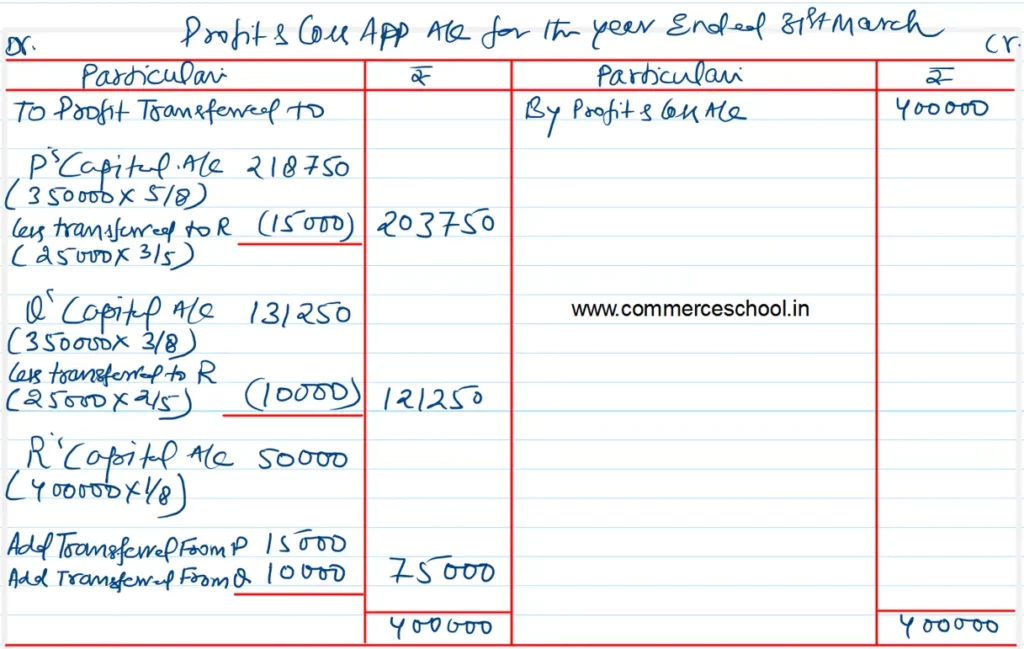 Profit & Loss APP A/c for the year Ended 31st March
Dr.
Cr.
Particulars ₹ Particulars ₹
To Profit Transferred to By Profit & Loss A/c 400000
P's Capital A/c 218750
(350000 × 5/8)
less transferred to R (15000) 203750
(25000 × 3/5)
Q's Capital A/c 131250
www.commerceschool.in
(350000 × 3/8)
less transferred to R
(25000 × 2/5) (10000) 121250
R's Capital A/c 50000
(400000 × 1/8)
Add Transferred From P 15000
Add Transferred From Q 10000 75000
400000 400000